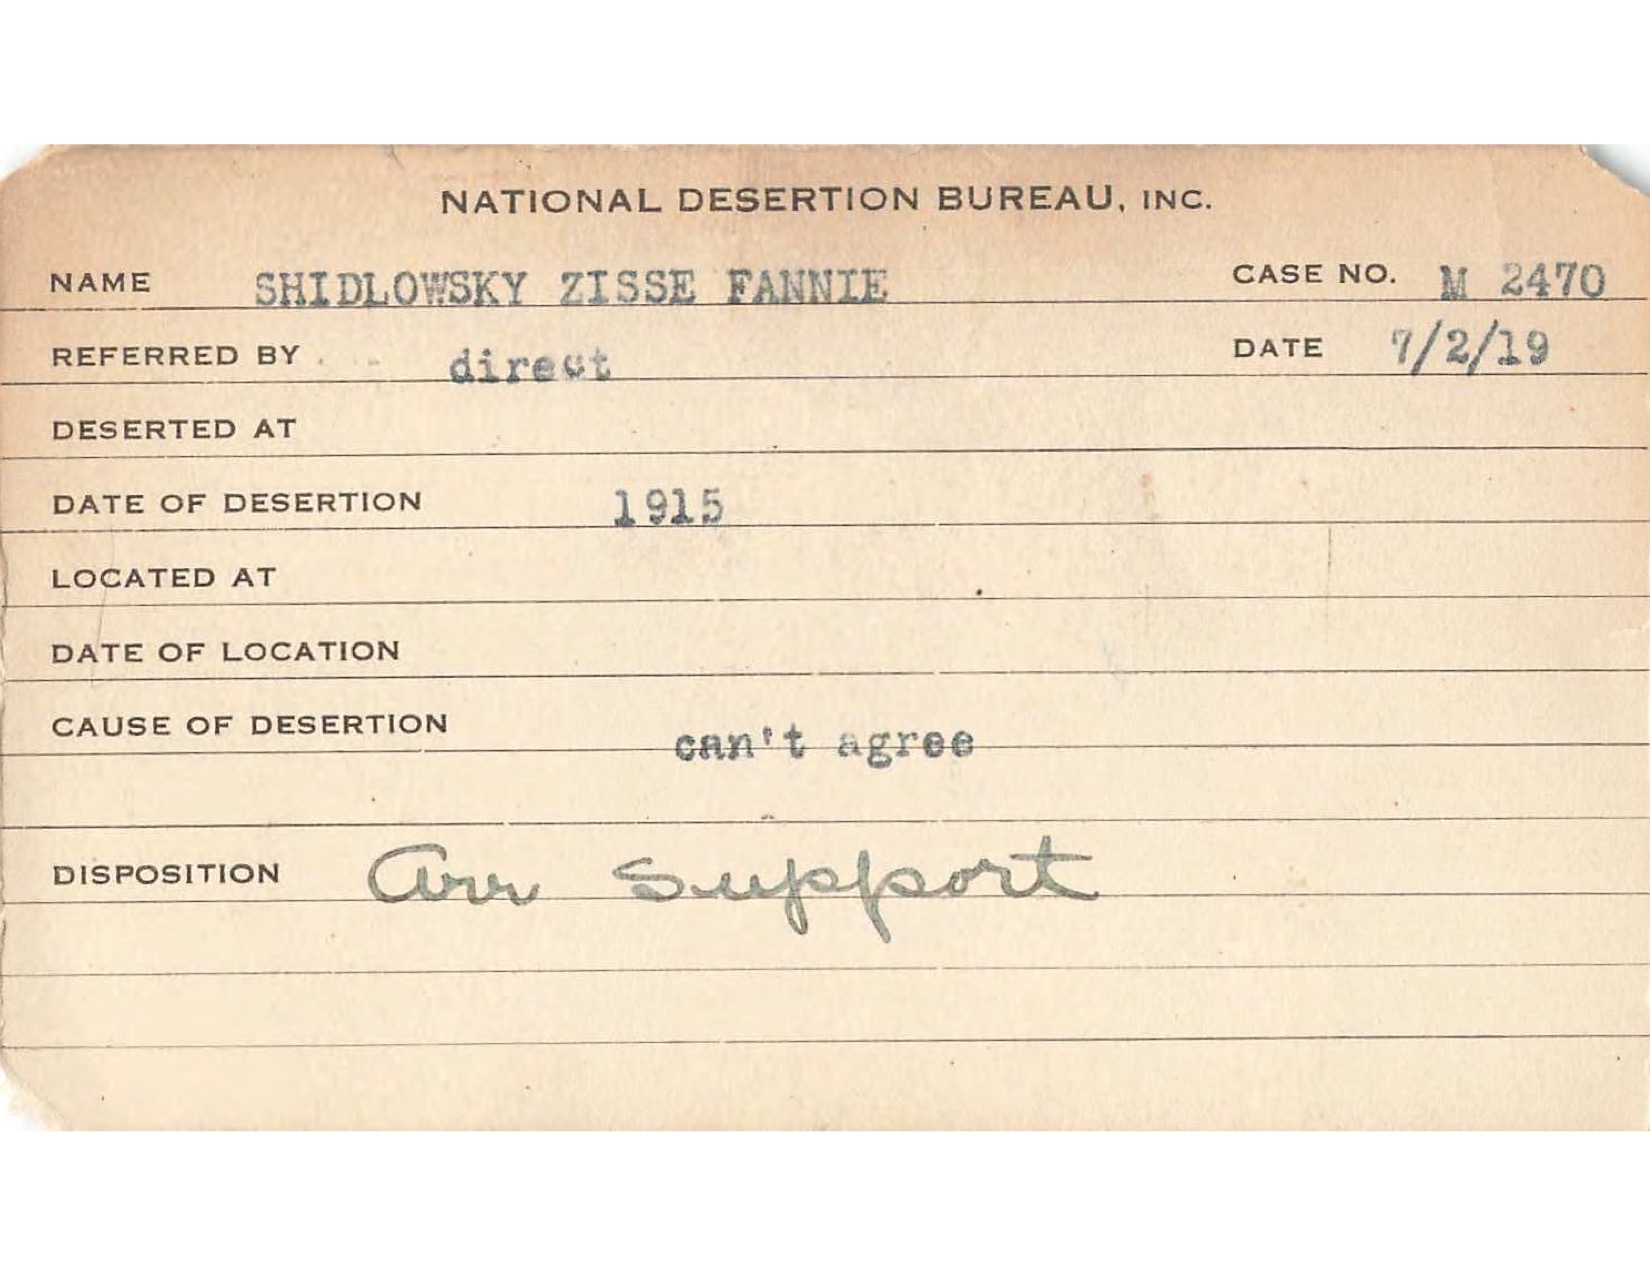 NATIONAL DESERTION BUREAU, INC.
NAME SHIDLOWSKY ZISSE FANNIE CASE NO. M 2470
REFERRED BY direct DATE 7/2/19
DESERTED AT
DATE OF DESERTION 1915
LOCATED AT
DATE OF LOCATION
CAUSE OF DESERTION can't agree
DISPOSITION Arr Support